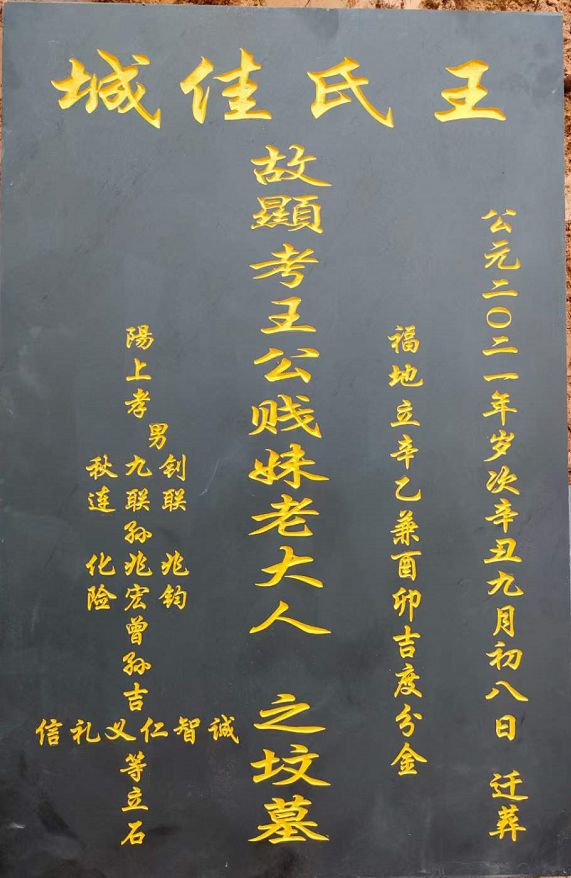 王氏佳城
公元二〇二一年岁次辛丑九月初八日 迁葬
福地立辛乙兼酉卯吉度分金
故顯考王公贱妹老大人 之坟墓
陽上孝
男
钊联 兆钧
九联孙兆宏曾孙吉
秋连 化险
诚智仁义礼信
等立石